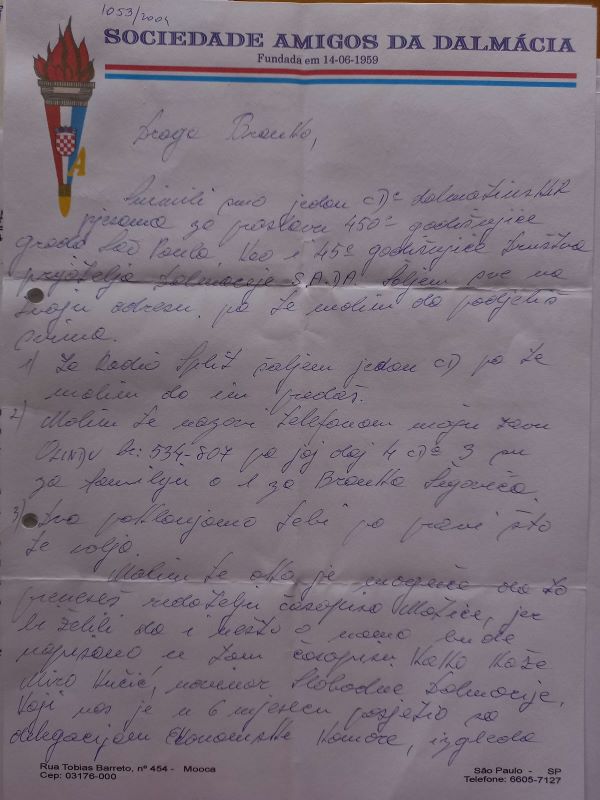 1053/2004
SOCIEDADE AMIGOS DA DALMÁCIA
Fundada em 14-06-1959
A
Drago Branko,
Snimili smo jedan CD a dalmatinskih
pjesama za proslavu 450 e godišnjice
grada Sao Paula, kao i 45 e godišnjice Društva
prijatelja Dalmacije S.A.DA. Šaljem sve na
tvoju adresu, pa te molim da podjeliš
svima.
1) Za Radio Split šaljem jedan CD pa te
molim da im predaš.
2) Molim te nazovi telefonom moju
br: 534-807 pa joj daj 4 CD a 3 su
za familiju a 1 za Branka
3) Dva poklanjamo tebi pa pravi što
te volja.
Molim te ako je moguće da to
preneseš redatelju časopisa Matice, jer
bi želili da i nešto o nama bude
napisano u tom časopisu. Kako kaže
Miro Kučić, novinar Slobodne Dalmacije,
koji nas je u 6 mjesecu posjetio sa
delegacijom Ekonomske Komore, izgleda
Rua Tobias Barreto, nº 454 - Mooca
Cep: 03176-000
São Paulo - SP
Telefone: 6605-7127